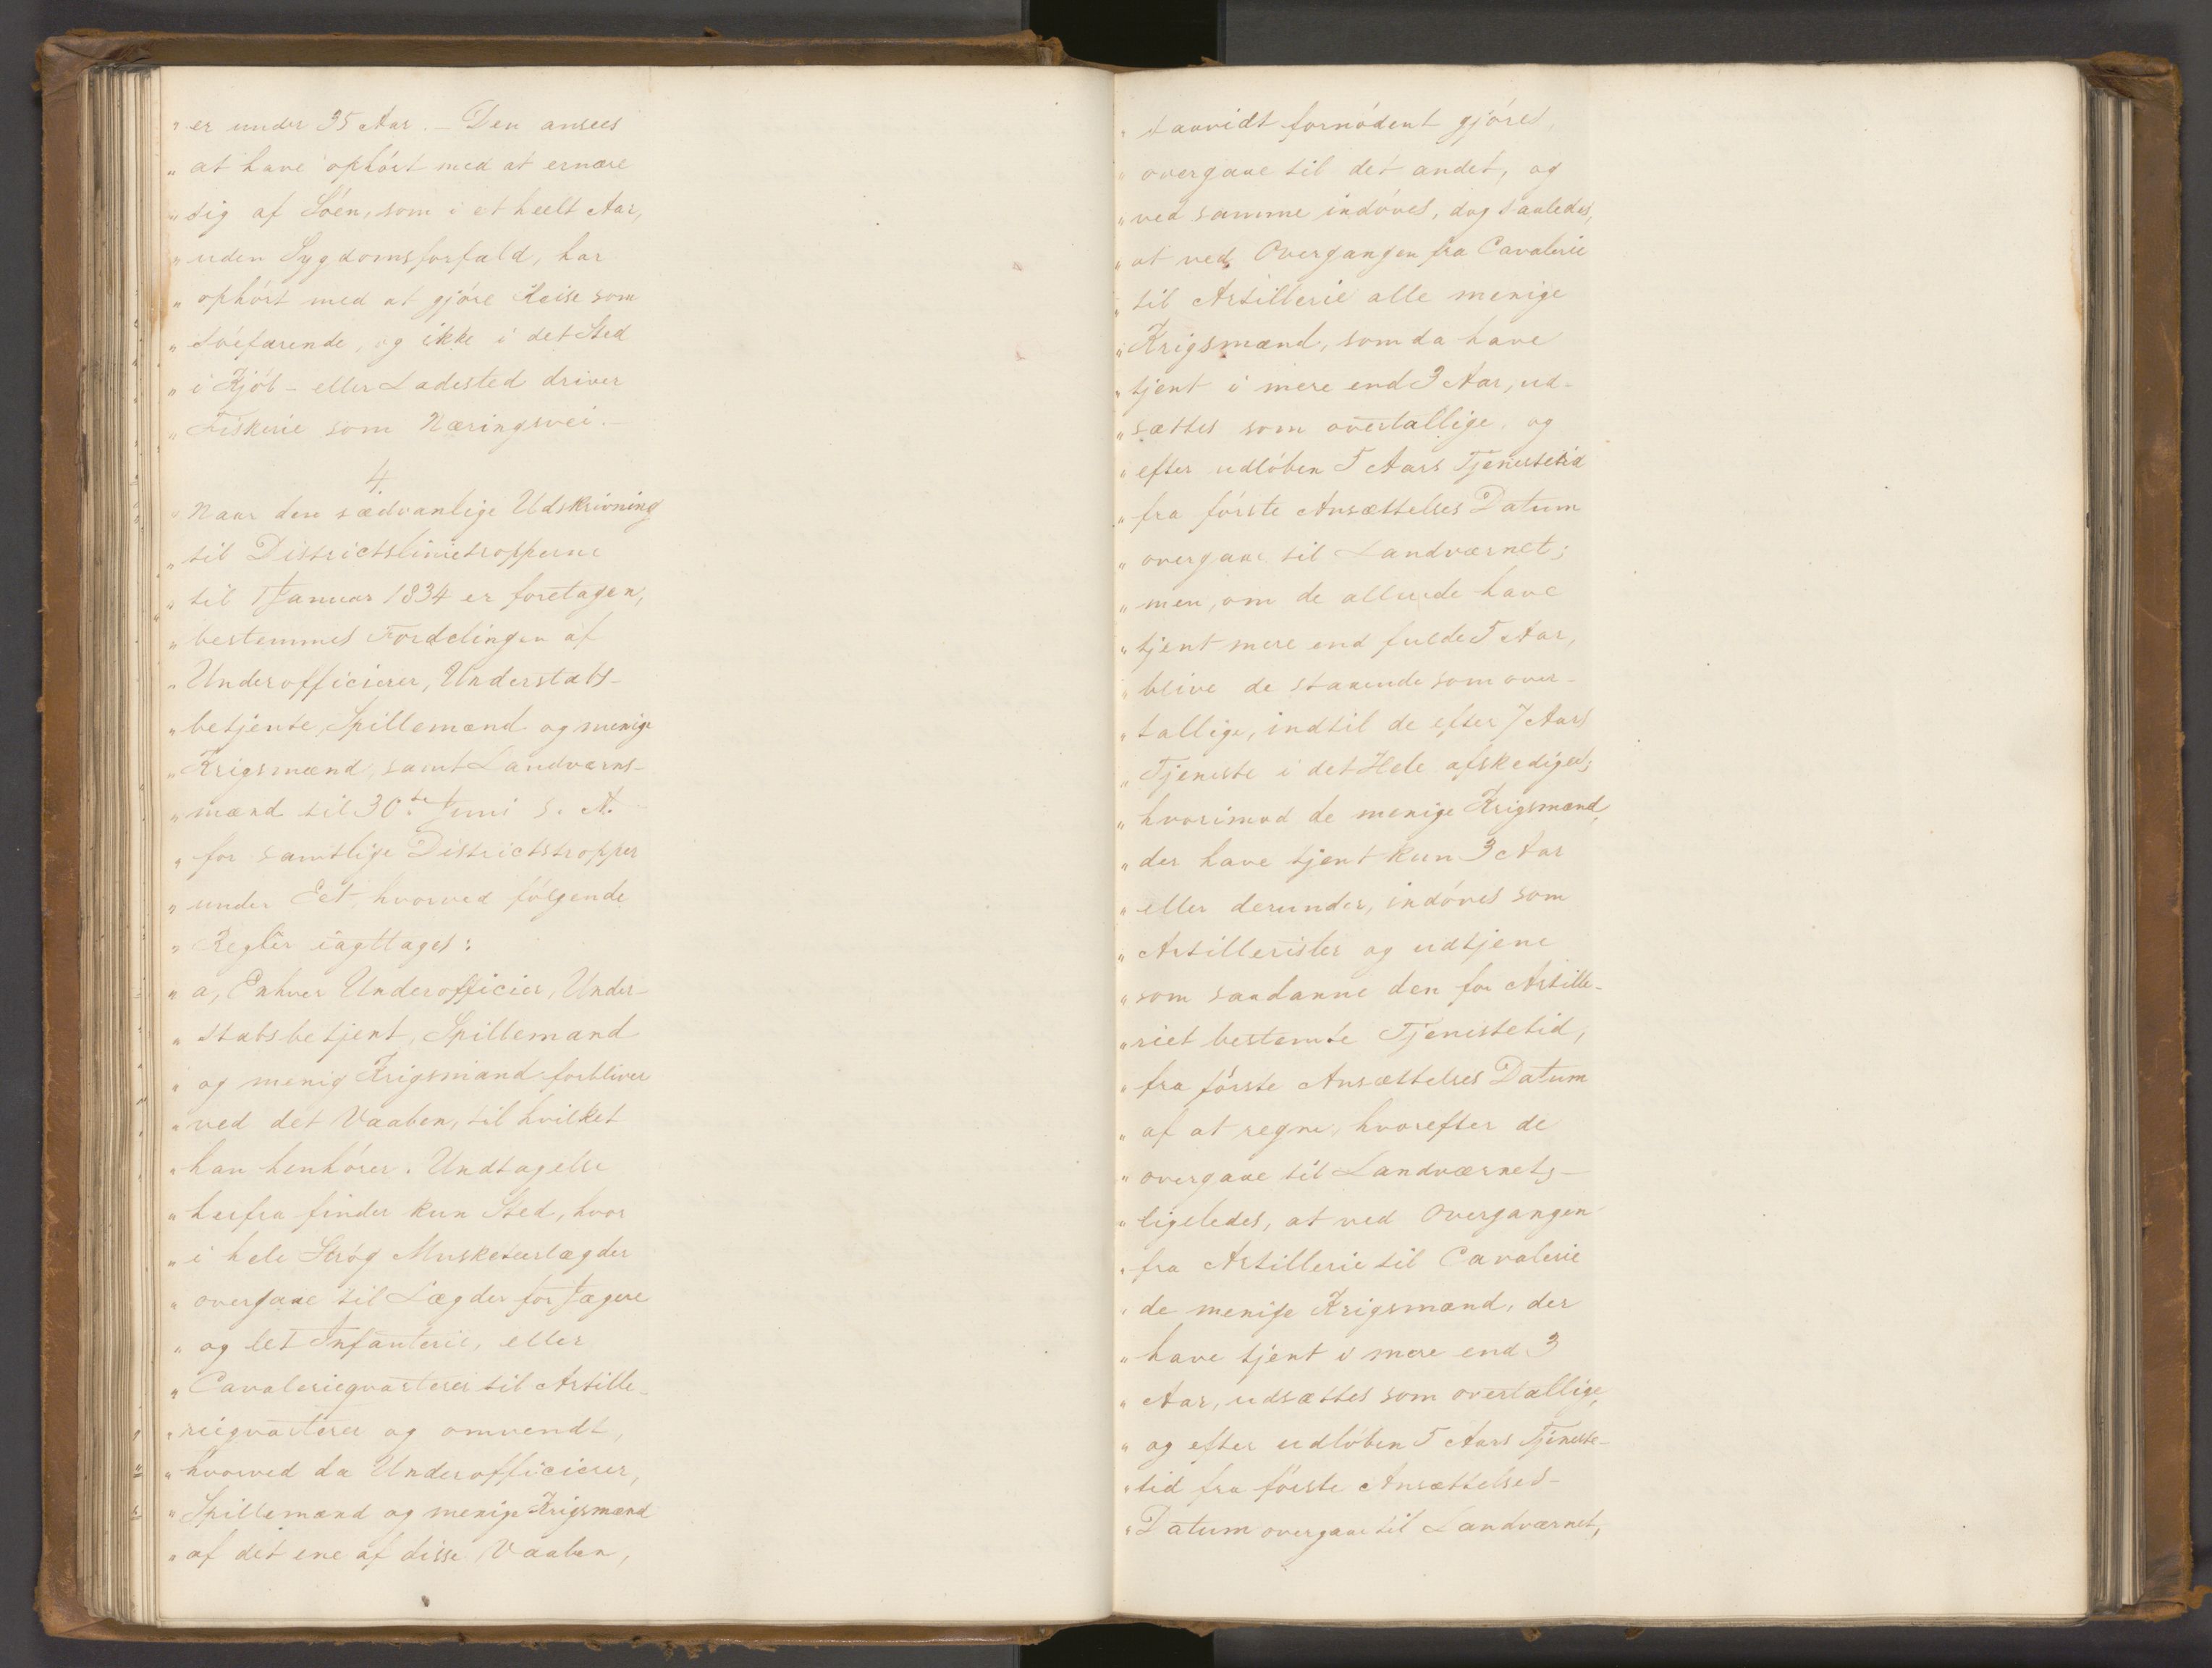 „ er under 35 Aar. – Den ansees
„ at have ophórt med at ernære
„ sig af Sóen, som i et heelt Aar,
„ uden Sygdomsforfald, har
„ ophórt med at gjóre Reise som
„ sóefarende, og ikke i det Sted
„ i Kjób- eller Ladested driver
„ Fiskerie som Næringsvei. –
4.
„ Naar den sædvanlige Udskrivning
„ til Districtslinietropperne
„ til 1 Januar 1834 er foretagen,
„ bestemmes Fordelingen af
„ Underofficierer, Understabs-
„ betjente, Spillemænd og menige
„ Krigsmænd, samt Landværns-
„ mænd til 30.te Juni s. A.
„ for samtlige Districtstropper
„ under Eet hvorved fólgende
„ Regler iagttages:
„ a, Enhver Underofficier, Under-
„ stabsbetjent, Spillemand
„ og menig Krigsmand forbliver
„ ved det Vaaben, til hvilket
„ han henhórer. Undtagelse
„ herfra finder kun Sted, hvor
„ i hele Stróg Musketeerlægder
„ overgaae til Lægder for Jægere
„ og let Infanterie, eller
„ Cavaleriequarterer til Artille-
„ riequarterer og omvendt,
„ hvorved da Underofficierer,
„ Spillemænd og menige Krigsmænd
„ af det ene af disse Vaaben,
„ saavidt fornódent gjóres,
„ overgaae til det andet, og
„ ved samme indóves, dog saaledes,
„ at ved Overgangen fra Cavalerie
„ til Artillerie alle menige
„ Krigsmænd, som da have
„ tjent i mere end 3 Aar, ud-
„ sættes som overtallige, og
„ efter udlóben 5 Aars Tjenestetid
„ fra fórste Ansættelses Datum
„ overgaae til Landværnet;
„ men, om de allerede have
„ tjent mere end fulde 5 Aar,
„ blive de staaende som over-
„ tallige, indtil de efter 7 Aars
„ Tjeneste i det Hele afskediges;
„ hvorimod de menige Krigsmænd,
„ der have tjent kun 3 Aar
„ eller derunder, indóves som
„ Artillerister og udtjene
„ som saadanne den for Artille-
„ riet bestemte Tjenestetid,
„ fra fórste Ansættelses Datum
„ af at regne, hvorefter de
„ overgaae til Landværnet; –
„ ligeledes, at ved Overgangen
„ fra Artillerie til Cavalerie
„ de menige Krigsmænd, der
„ have tjent i mere end 3
„ Aar, udsættes som overtallige,
„ og efter udlóben 5 Aars Tjeneste-
„ tid fra fórste Ansættelses-
„ Datum overgaae til Landværnet,